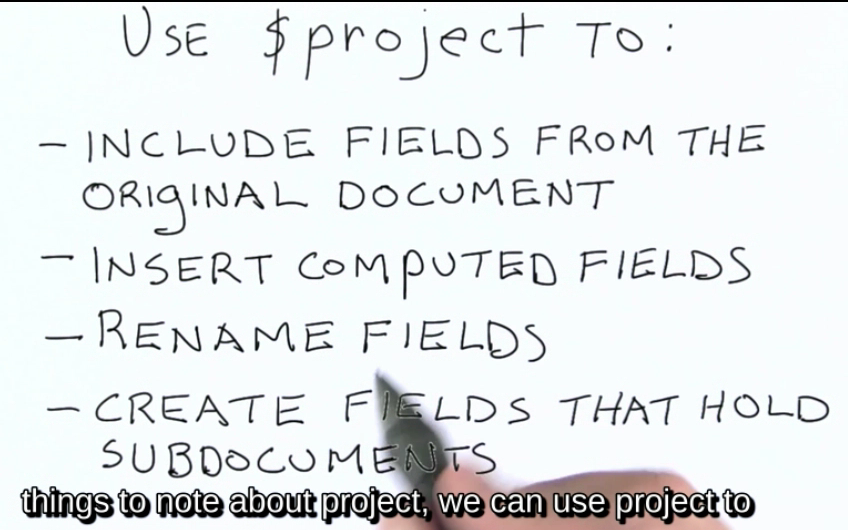 USE $project TO:
- INCLUDE FIELDS FROM THE
ORIGINAL DOCUMENT
- INSERT COMPUTED FIELDS
- RENAME FIELDS
- CREATE FIELDS THAT HOLD
SUBDOCUMENTS
things to note about project, we can use project to